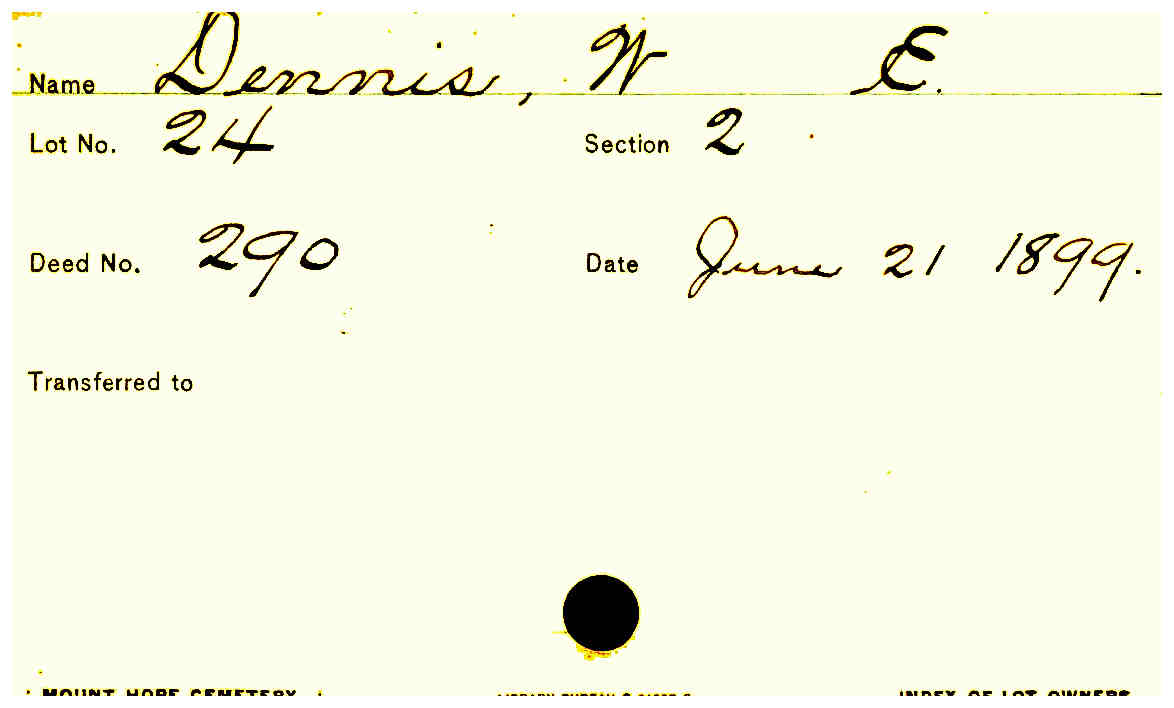 Name Dennis, W E.
Lot No. 24 Section 2
Deed No. 290 Date June 21 1899.
Transferred to
MOUNT HOPE CEMETERY INDEX OF LOT OWNERS